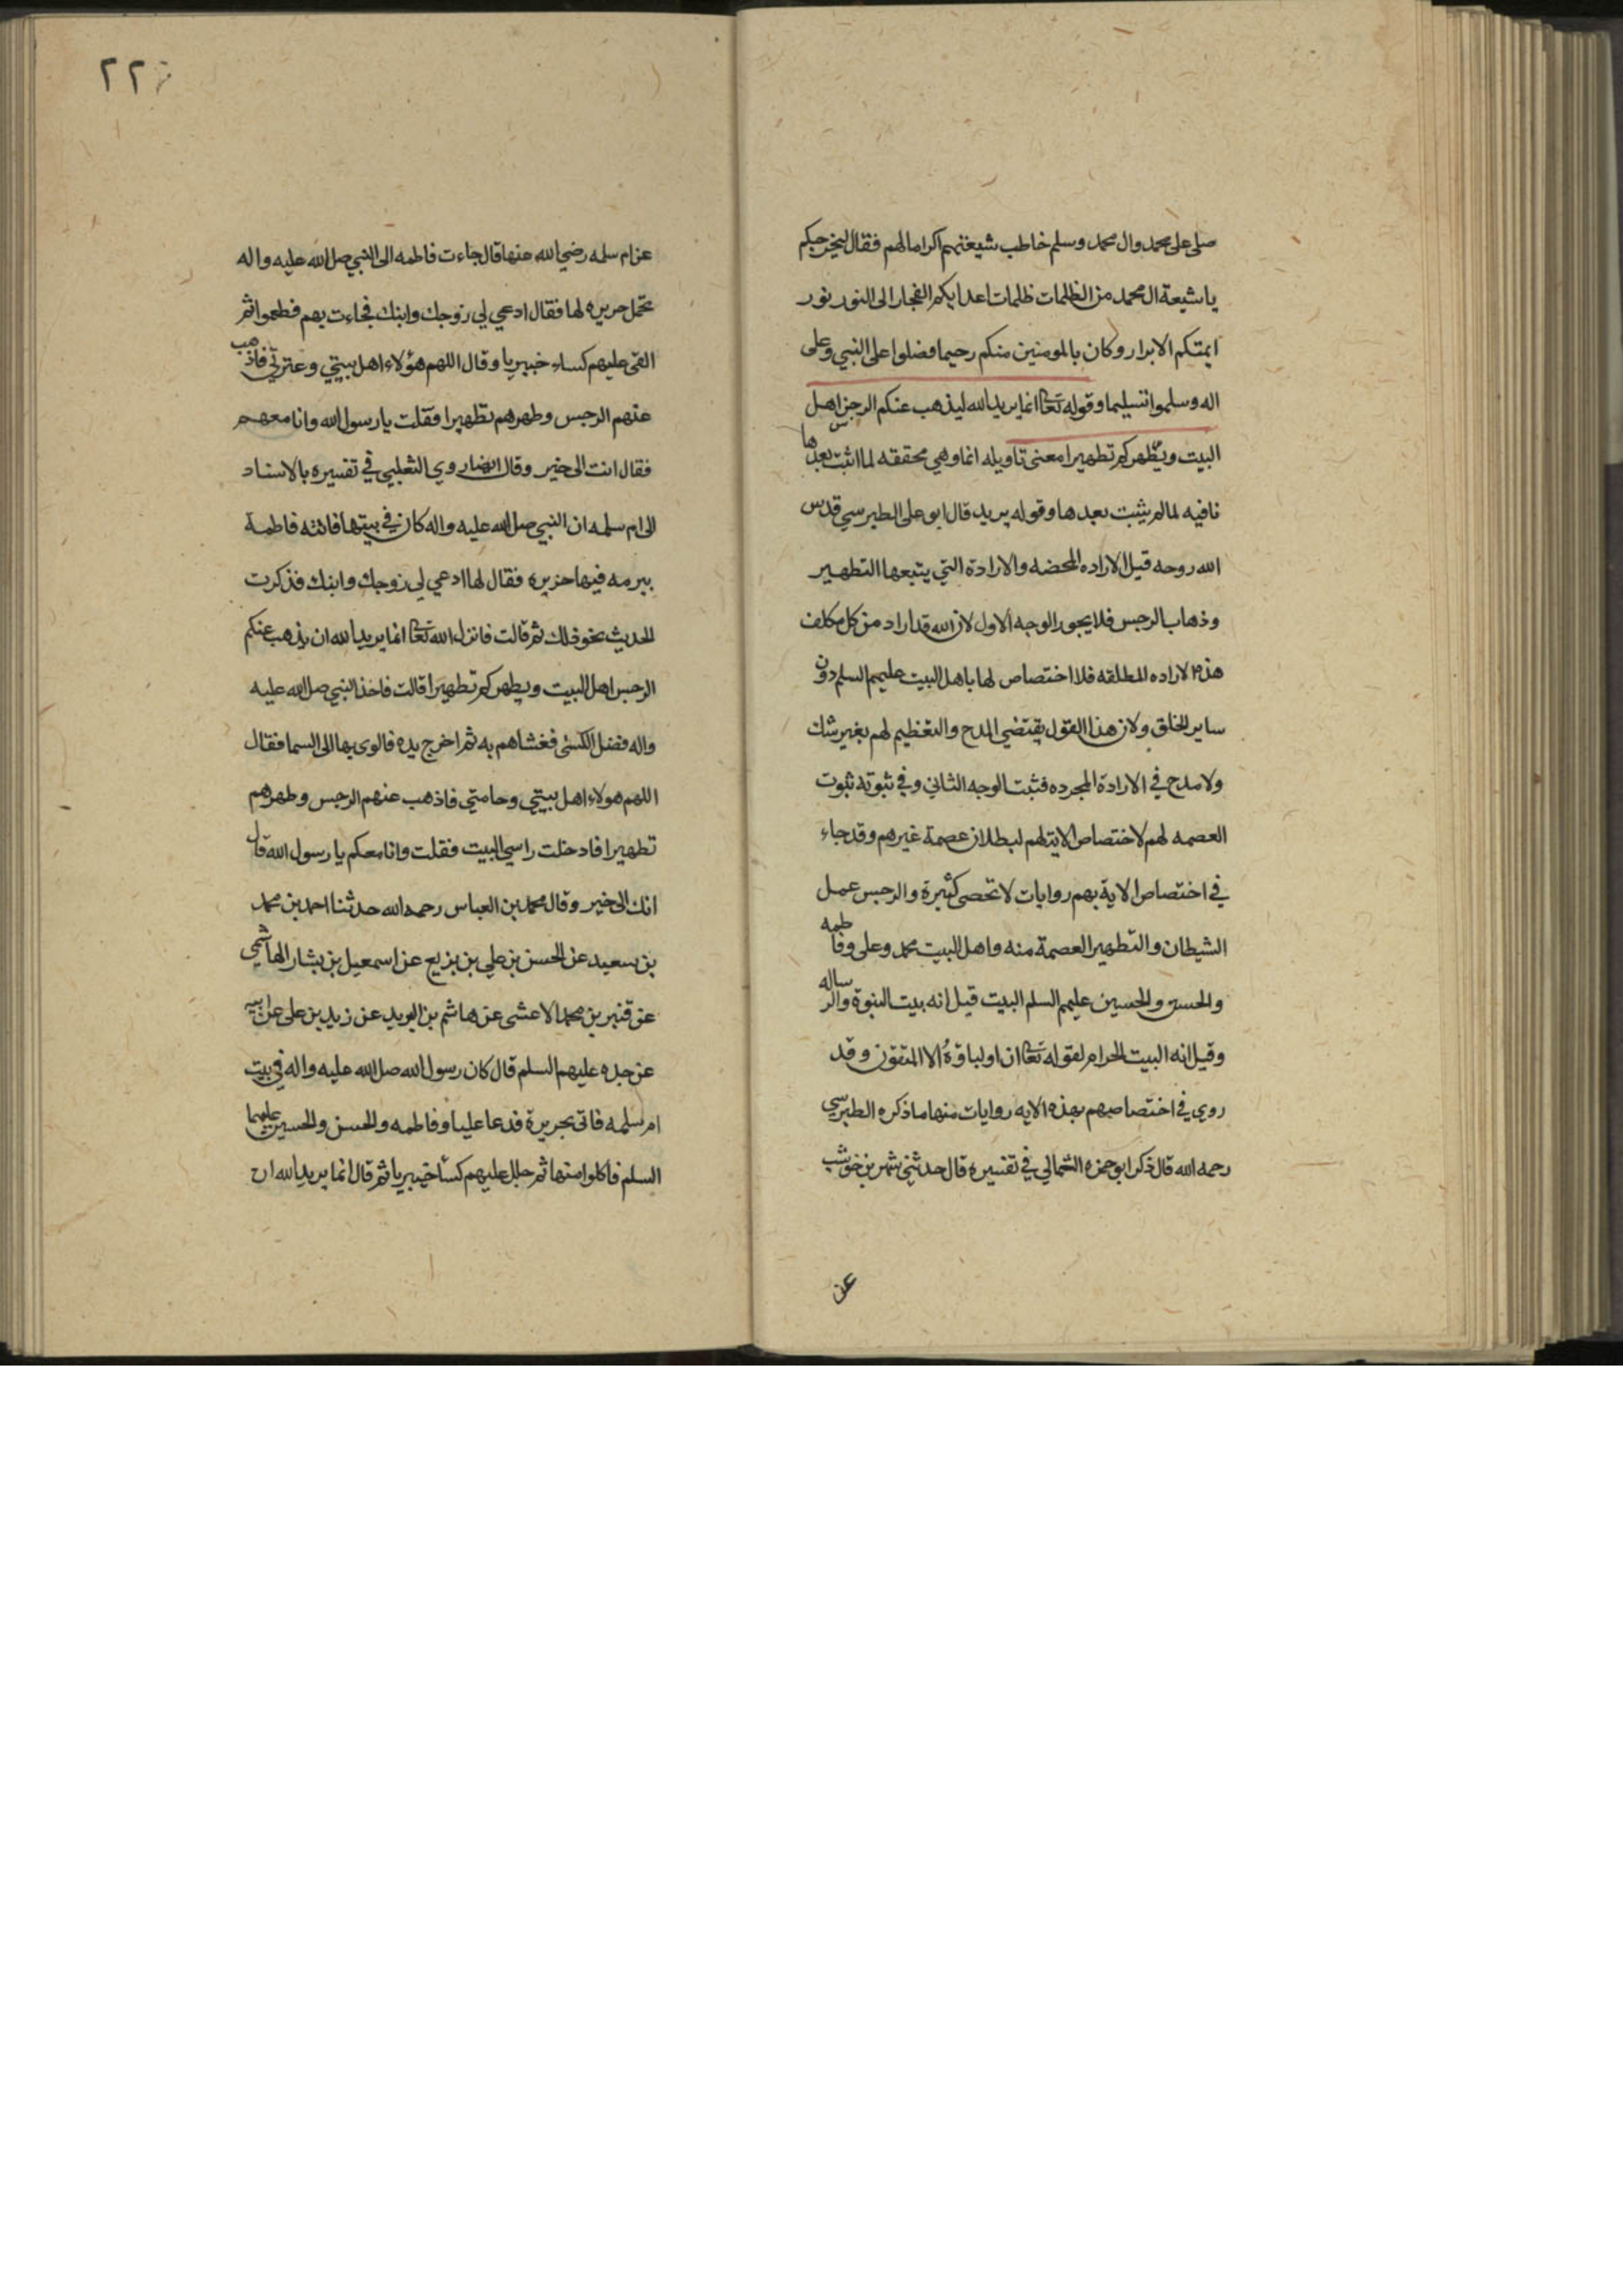 صلى على محمد وال محمد وسلم خاطب شيعتهم اكراما لهم فقال ليخرجكم
يا شيعة ال محمد من الظلمات ظلمات اعدايكم الفجار الى النور نور
ايمتكم الابرار وكان بالمومنين منكم رحيما فصلوا على النبي وعلى
اله وسلموا تسليما وقوله تعا انما يريد الله ليذهب عنكم الرجس اهل
البيت ويطهركم تطهيرا معنى تاويله انما وهي محققه لما اثبت بعدها
نافيه لما لم يثبت بعدها وقوله يريد قال ابو على الطبرسي قدس
الله روحه قيل الاراده المحضه والارادة التي يتبعها التطهير
وذهاب الرجس فلا يجوز الوجه الاول لان الله قد اراد من كل مكلف
هذه الاراده المطلقه فلا اختصاص لها باهل البيت عليهم السلم دون
ساير الخلق ولان هذا القول يقتضي المدح والتعظيم لهم بغير شك
ولا مدح في الارادة المجرده فثبت الوجه الثاني وفي ثبوته ثبوت
العصمه لهم لاختصاص الاية لهم لبطلان عصمة غيرهم وقد جاء
في اختصاص الاية بهم روايات لا تحصى كثيرة والرجس عمل
الشيطان والتطهير العصمة منه واهل البيت محمد وعلى وفاطمه
والحسن والحسين عليهم السلم البيت قيل انه بيت النبوة والرساله
وقيل انه البيت الحرام لقوله تعا ان اولياؤه الا المتقون وقد
روى في اختصاصهم بهذه الايه روايات منها ما ذكره الطبرسي
رحمه الله قال ذكر ابو حمزه الثمالي في تفسيره قال حدثني شهر بن حوشب
عن
٢٢
عن ام سلمه رضي الله عنها قال جاءت فاطمه الى النبي صل الله عليه واله
تحمل حريره لها فقال ادعي لي زوجك وابنك فجاءت بهم فطعموا ثم
القى عليهم كساء خيبريا وقال اللهم هؤلاء اهل بيتي وعترتي فاذهب
عنهم الرجس وطهرهم تطهيرا فقلت يا رسول الله وانا معهم
فقال انت الى خير وقال ايضا روي الثعلبي في تفسيره بالاسناد
الى ام سلمه ان النبي صل الله عليه واله كان في بيتها فاتته فاطمة
ببرمه فيها حزيره فقال لها ادعي لي زوجك وابنك فذكرت
الحديث نحو ذلك ثم قالت فانزل الله تعا انما يريد الله ان يذهب عنكم
الرجس اهل البيت ويطهركم تطهيرا قالت فاخذ النبي صل الله عليه
واله فضل الكسى فغشاهم به ثم اخرج يده فالوى بها الى السما فقال
اللهم هولاء اهل بيتي وحامتي فاذهب عنهم الرجس وطهرهم
تطهيرا فادخلت راسي البيت فقلت وانا معكم يا رسول الله قال
انك الى خير وقال محمد بن العباس رحمه الله حدثنا احمد بن محمد
بن سعيد عن الحسن بن علي بن بزيع عن اسمعيل بن بشار الهاشمي
عن قنبر بن محمد الاعشى عن هاشم بن البريد عن زيد بن على عن ابيه
عن جده عليهم السلم قال كان رسول الله صل الله عليه واله في بيت
ام سلمه فاتى بحريرة فدعا عليا وفاطمه والحسن والحسين عليهما
السلم فاكلوا منها ثم جلل عليهم كسا خيبريا ثم قال انما يريد الله ان